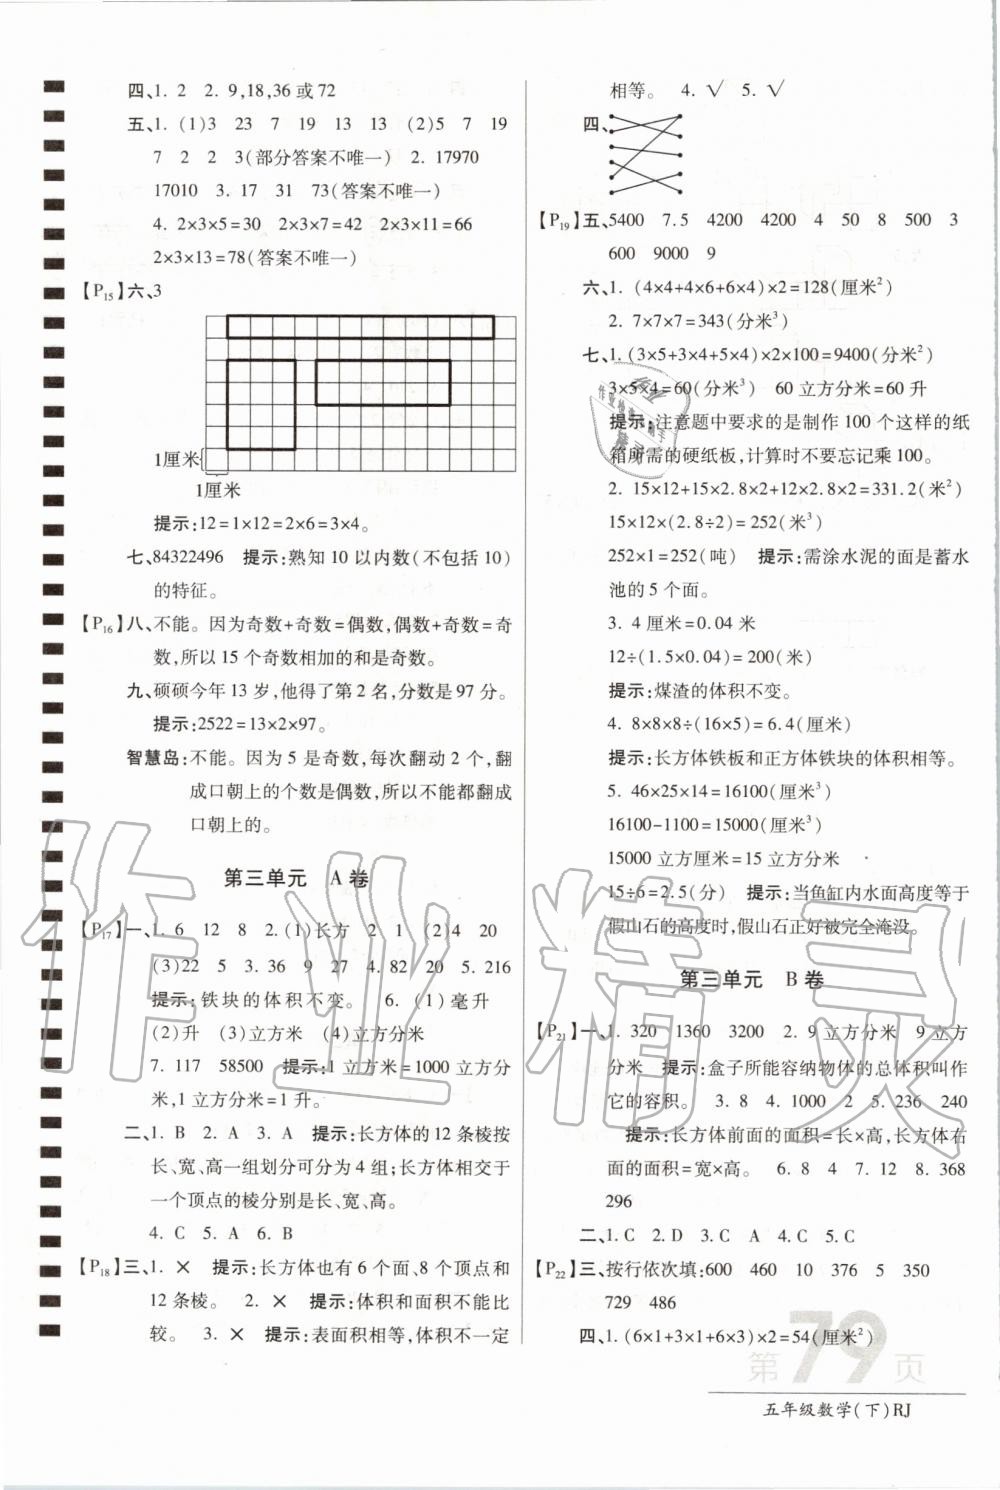 四、1. 2　2. 9,18,36或72
五、1. (1)3　23　7　19　13　13　(2)5　7　19
7　2　2　3(部分答案不唯一)　2. 17970
17010　3. 17　31　73(答案不唯一)
4. 2×3×5=30　2×3×7=42　2×3×11=66
2×3×13=78(答案不唯一)
【P15】六、3
1厘米
1厘米
提示:12=1×12=2×6=3×4。
七、84322496　提示:熟知10以内数(不包括10)
的特征。
【P16】八、不能。因为奇数+奇数=偶数,偶数+奇数=奇
数,所以15个奇数相加的和是奇数。
九、硕硕今年13岁,他得了第2名,分数是97分。
提示:2522=13×2×97。
智慧岛:不能。因为5是奇数,每次翻动2个,翻
成口朝上的个数是偶数,所以不能都翻成
口朝上的。
第三单元　A卷
【P17】一、1. 6　12　8　2. (1)长方　2　1　(2)4　20
(3)22　5　3. 36　9　27　4. 82　20　5. 216
提示:铁块的体积不变。　6. (1)毫升
(2)升　(3)立方米　(4)立方分米
7. 117　58500　提示:1立方米=1000立方分
米,1立方分米=1升。
二、1. B　2. A　3. A　提示:长方体的12条棱按
长、宽、高一组划分可分为4组;长方体相交于
一个顶点的棱分别是长、宽、高。
4. C　5. A　6. B
【P18】三、1. ×　提示:长方体也有6个面、8个顶点和
12条棱。　2. ×　提示:体积和面积不能比
较。　3. ×　提示:表面积相等,体积不一定
相等。　4. √　5. √
四、
【P19】五、5400　7.5　4200　4200　4　50　8　500　3
600　9000　9
六、1. (4×4+4×6+6×4)×2=128(厘米²)
2. 7×7×7=343(分米³)
七、1. (3×5+3×4+5×4)×2×100=9400(分米²)
3×5×4=60(分米³)　60立方分米=60升
提示:注意题中要求的是制作100个这样的纸
箱所需的硬纸板,计算时不要忘记乘100。
2. 15×12+15×2.8×2+12×2.8×2=331.2(米²)
15×12×(2.8÷2)=252(米³)
252×1=252(吨)　提示:需涂水泥的面是蓄水
池的5个面。
3. 4厘米=0.04米
12÷(1.5×0.04)=200(米)
提示:煤渣的体积不变。
4. 8×8×8÷(16×5)=6.4(厘米)
提示:长方体铁板和正方体铁块的体积相等。
5. 46×25×14=16100(厘米³)
16100-1100=15000(厘米³)
15000立方厘米=15立方分米
15÷6=2.5(分)　提示:当鱼缸内水面高度等于
假山石的高度时,假山石正好被完全淹没。
第三单元　B卷
【P21】一、1. 320　1360　3200　2. 9立方分米　9立方
分米　提示:盒子所能容纳物体的总体积叫作
它的容积。　3. 8　4. 1000　2　5. 236　240
提示:长方体前面的面积=长×高,长方体右
面的面积=宽×高。　6. 8　4　7. 12　8. 368
296
二、1. C　2. D　3. C　A　4. C　5. C
【P22】三、按行依次填:600　460　10　376　5　350
729　486
四、1. (6×1+3×1+6×3)×2=54(厘米²)
第79页
五年级数学(下)RJ
作业精灵